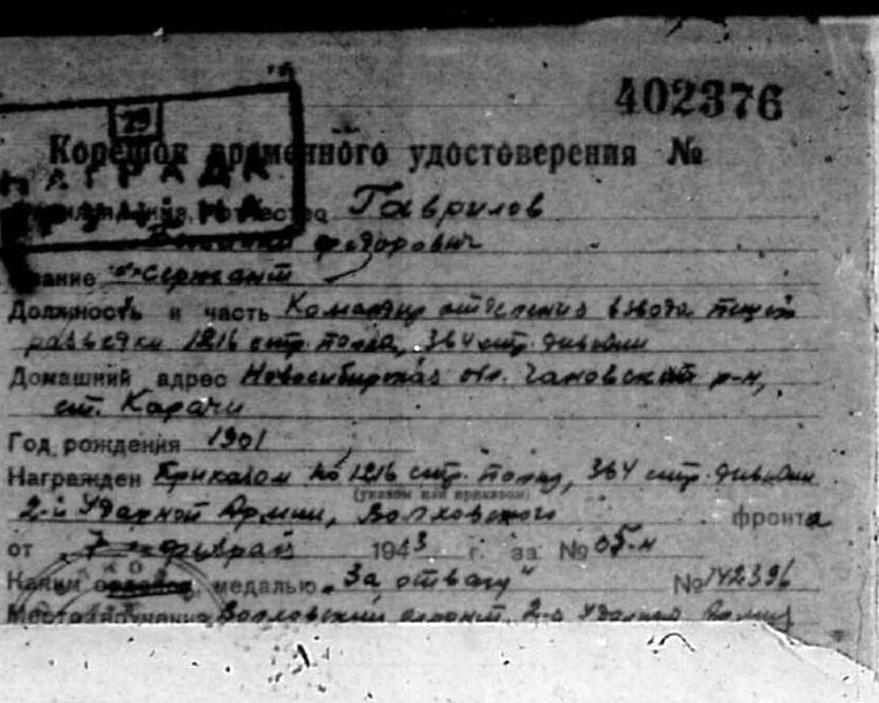 402376
29
Корешок временного удостоверения №
НАГРАДА
отчество Гаврилов
Федорович
звание сержант
Должность и часть Командир отделения взвода пешей
разведки 1216 стр. полка, 364 стр. дивизии
Домашний адрес Новосибирская обл. Чановский р-н,
ст. Карачи
Год рождения 1901
Награжден Приказом по 1216 стр. полку, 364 стр. дивизии
(указом или приказом)
2-й Ударной Армии, Волховского фронта
от 7 февраля 1943 г. за № 05-н
Каким орденом, медалью „За отвагу" № 142396
Место вручения Волховский фронт, 2-я Ударная Армия